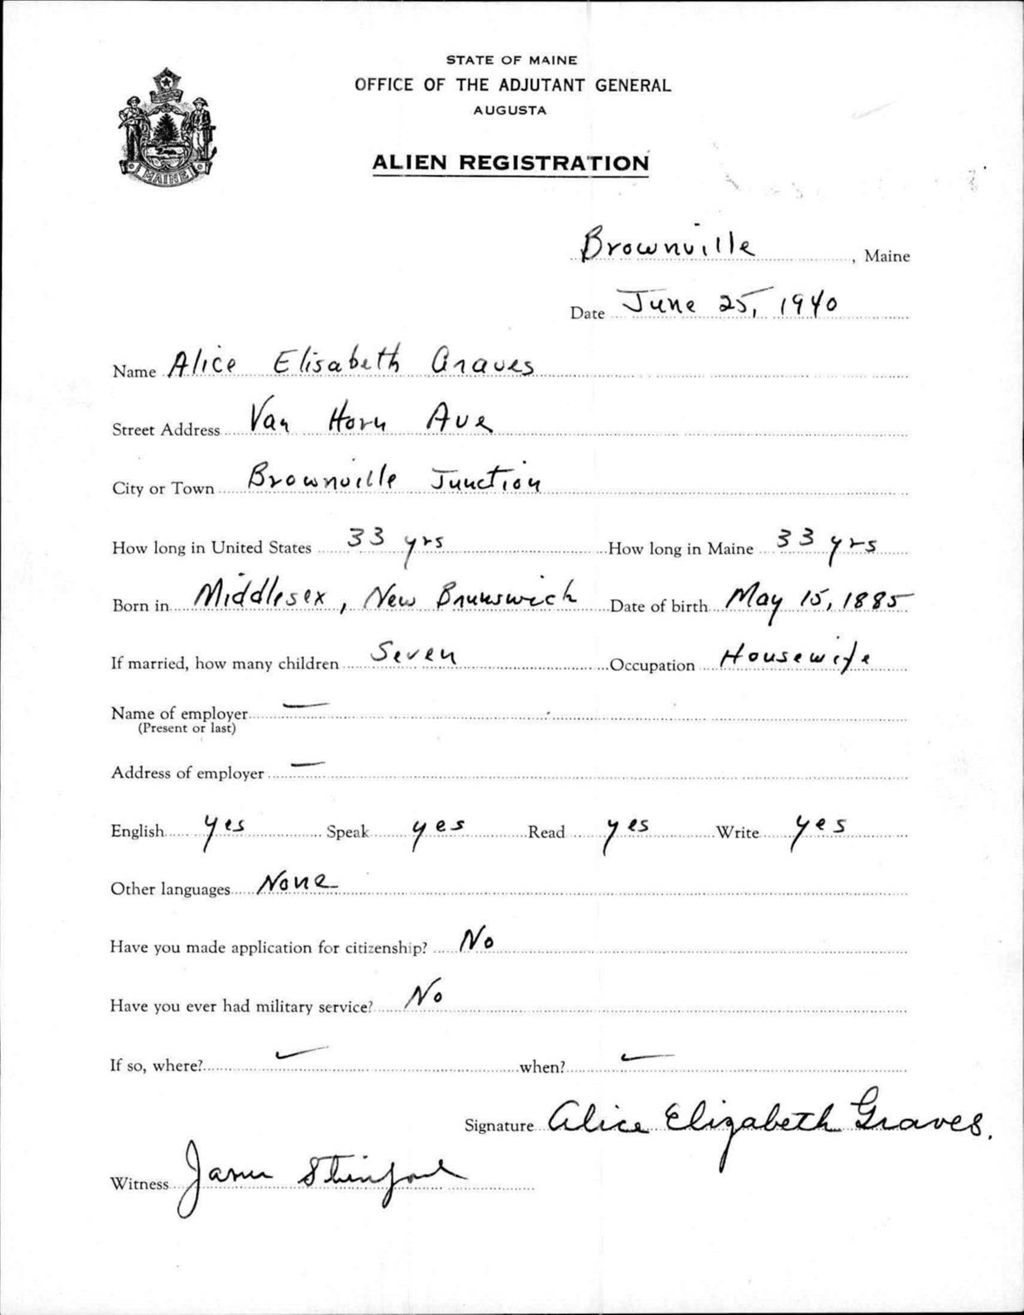 STATE OF MAINE
OFFICE OF THE ADJUTANT GENERAL
AUGUSTA
ALIEN REGISTRATION
MAINE
Brownville, Maine
Date June 25, 1940
Name Alice Elisabeth Graves
Street Address Van Horn Ave
City or Town Brownville Junction
How long in United States 33 yrs How long in Maine 33 yrs
Born in Middlesex, New Brunswick Date of birth May 15, 1885
If married, how many children Seven Occupation Housewife
Name of employer —
(Present or last)
Address of employer —
English yes Speak yes Read yes Write yes
Other languages None
Have you made application for citizenship? No
Have you ever had military service? No
If so, where? — when? —
Signature Alice Elizabeth Graves.
Witness